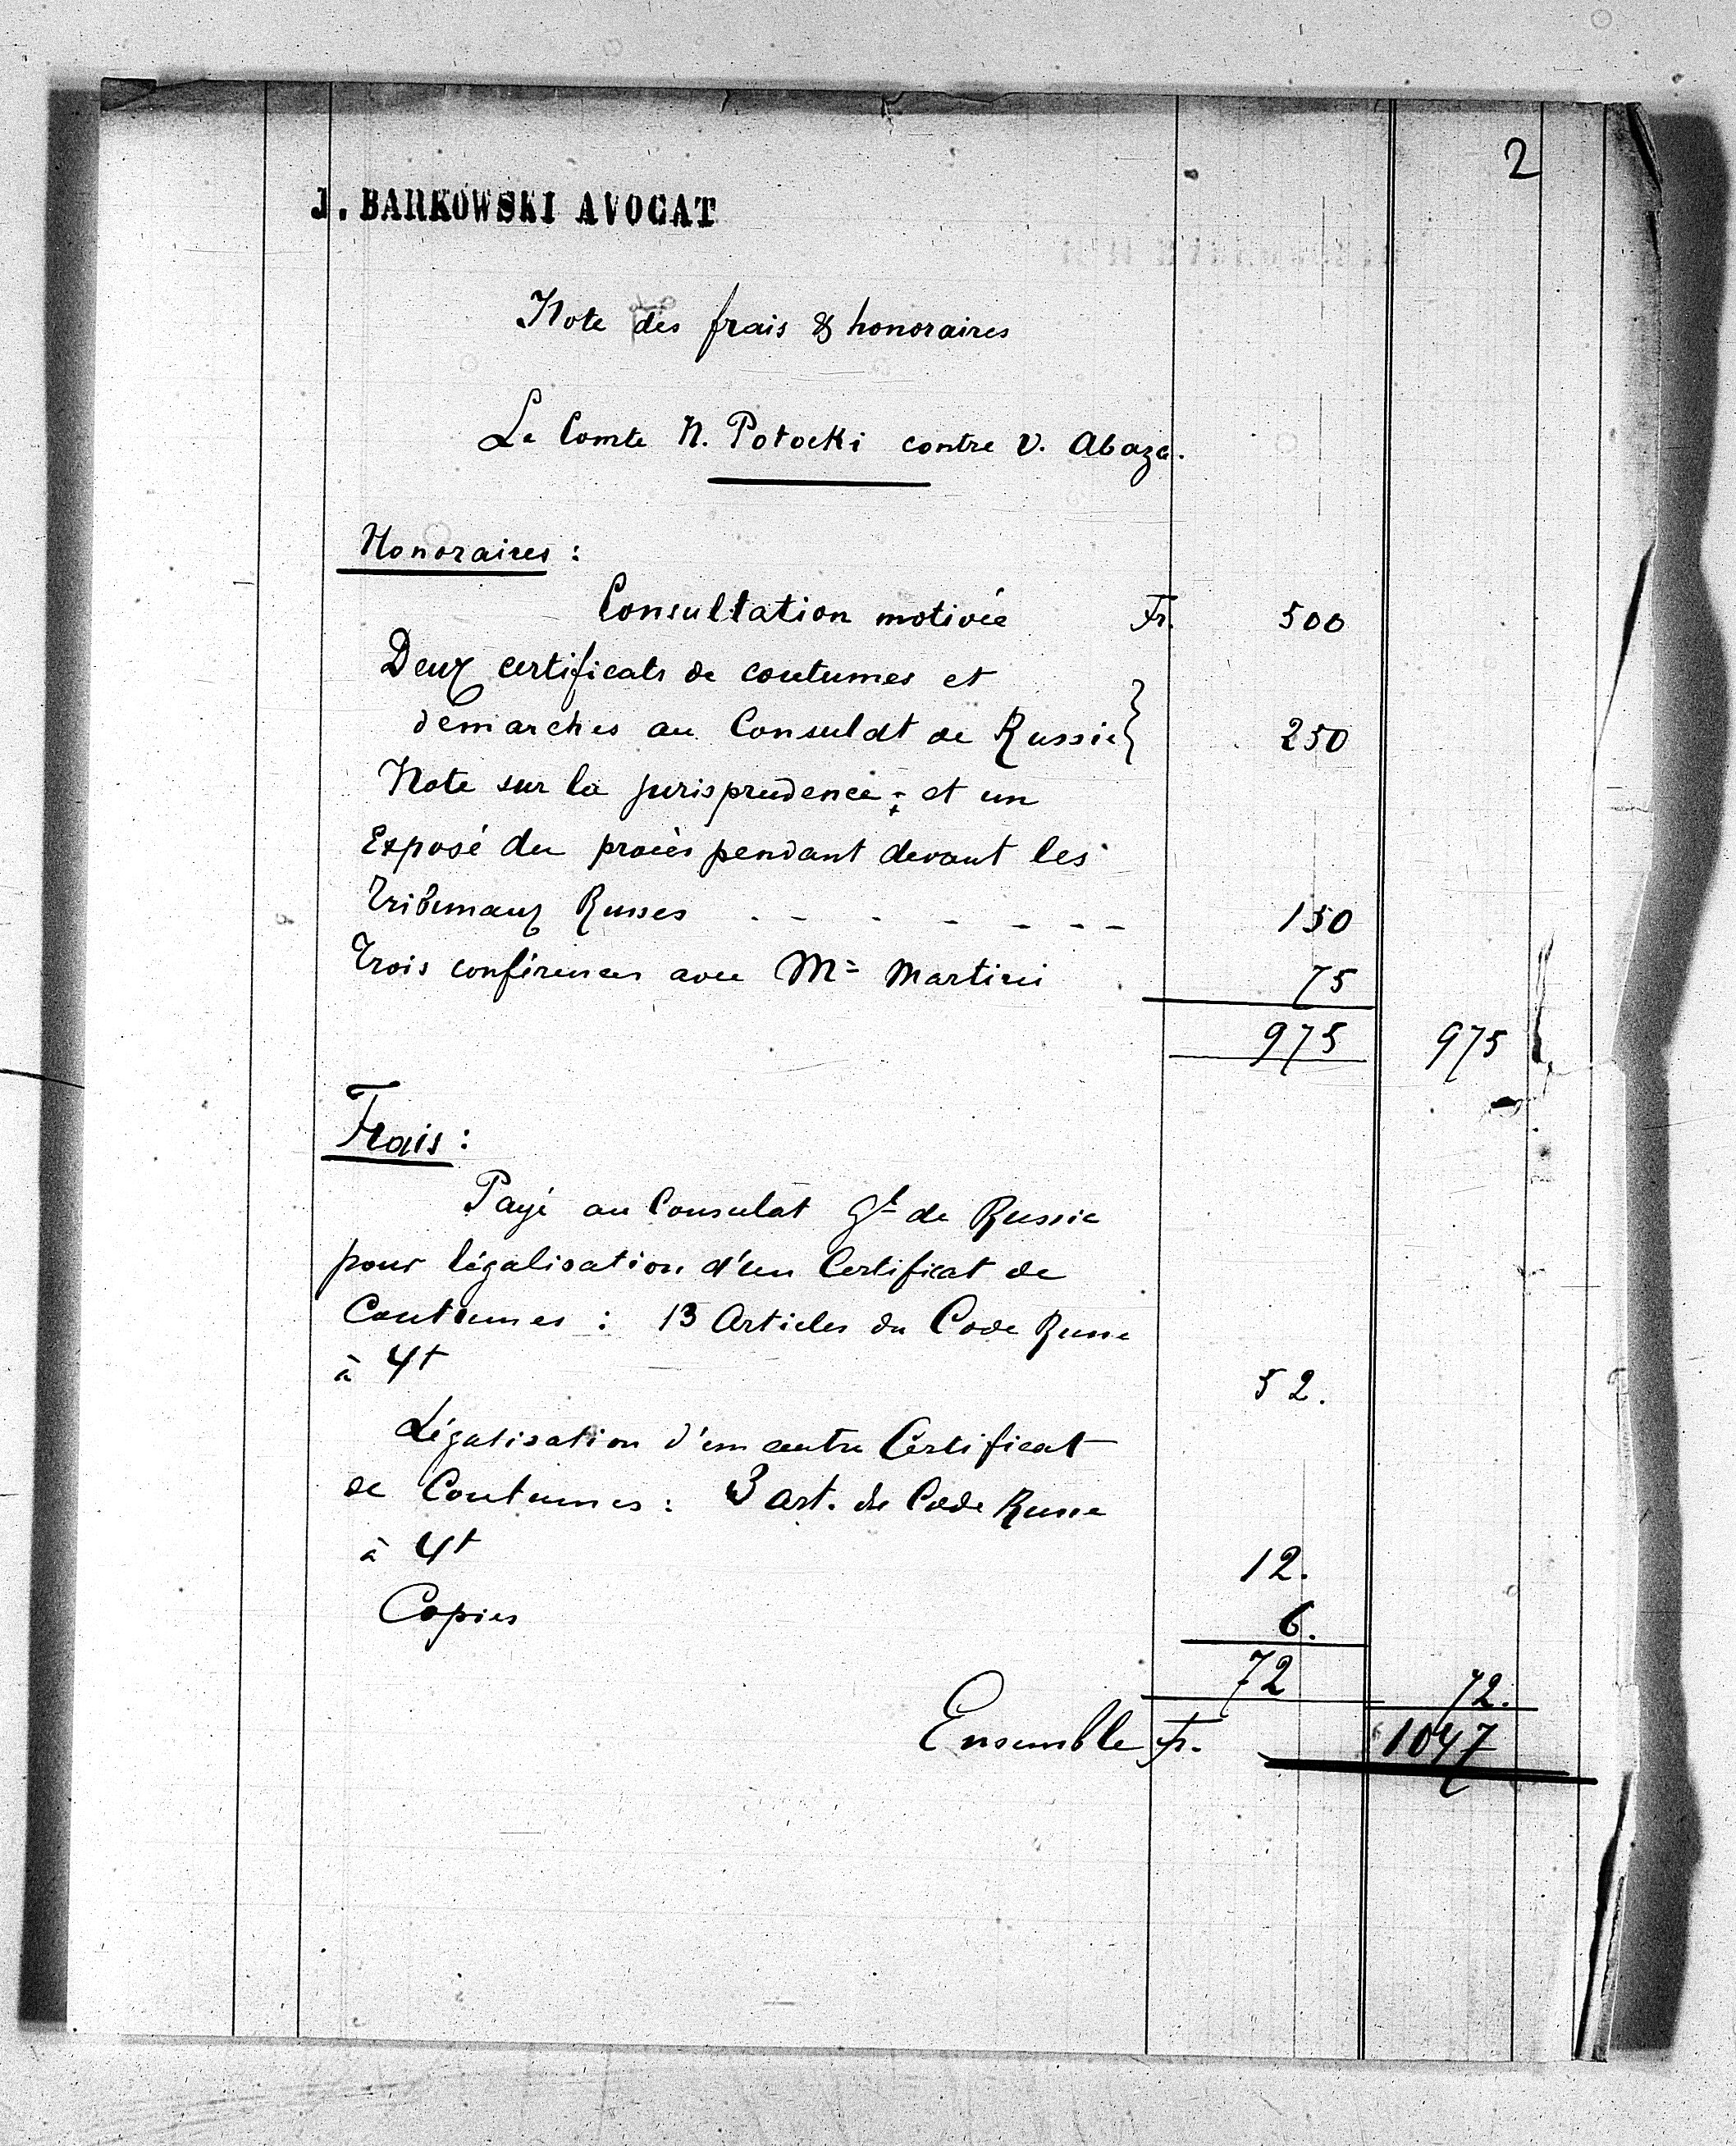 2
J. BARKOWSKI AVOCAT
Note des frais & honoraires
Le Comte N. Potocki contre V. Abaza.
Honoraires :
Consultation motivée Fr. 500
Deux certificats de coutumes et
démarches au Consulat de Russie } 250
Note sur la jurisprudence ; et un
Exposé du procès pendant devant les
Tribunaux Russes . - - - - - - 150
Trois conférences avec Me Martini 75
975 975
Frais :
Payé au Consulat Gl de Russie
pour légalisation d'un Certificat de
Coutumes : 13 Articles du Code Russe
à 4f 52.
Légalisation d'un autre Certificat
de Coutumes : 3 art. du Code Russe
à 4f 12.
Copies 6.
72 72.
Ensemble Fr. 1047